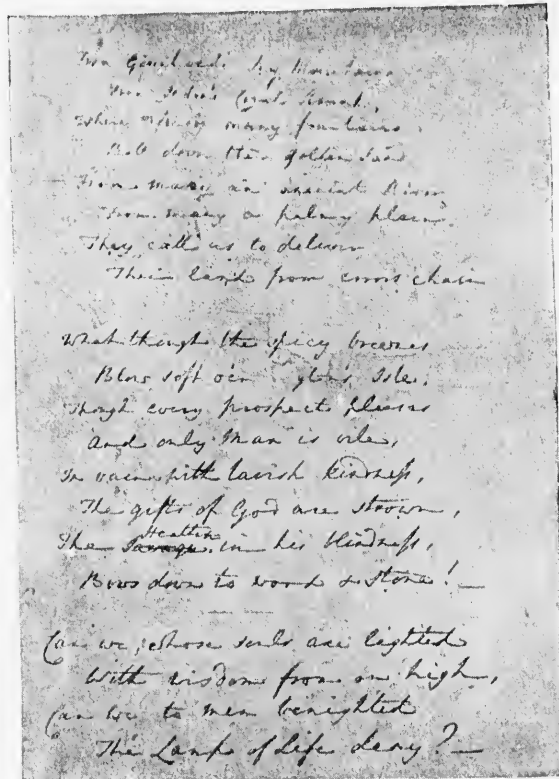 From Greenlands Icy Mountains
From India's Coral Strand,
Where Africs sunny fountains
Roll down their golden sand
From many an ancient River
From many a palmy plain
They call us to deliver
Their land from errors chain
What though the spicy breezes
Blow soft o'er ylons Isle,
Though every prospect pleases
And only Man is vile,
In vain with lavish kindness,
The gifts of God are strown,
Heathen
The Savage in his blindness,
Bows down to wood & stone! —
Can we, whose souls are lighted
With wisdom from on high,
Can we to men benighted
The Lamp of Life deny? —